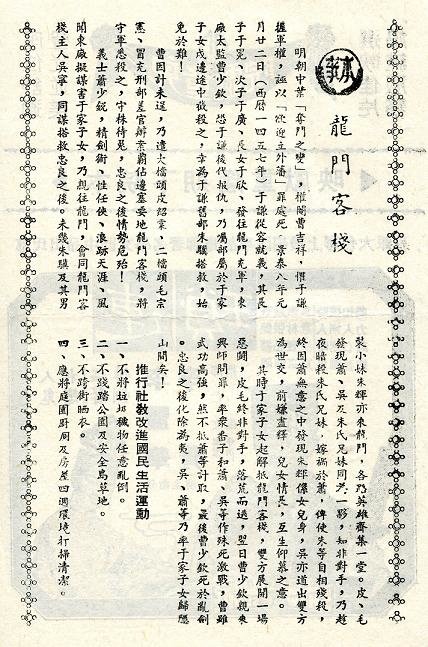 本事
龍門客棧
明朝中葉「奪門之變」，權閹曹吉祥，懼于謙
握軍權，誣以「欲迎立外藩」罪處死。景泰八年元
月廿二日（西曆一四五七年）于謙從容就義，其長
子于冕、次子于廣、長女于欣、發往龍門充軍，東
廠太監曹少欽，恐于謙後代報仇，乃囑部屬於于家
子女戍邊途中截殺之，幸為于謙舊部朱驥搭救，始
免於難！
曹因計未逞，乃遣大檔頭皮紹棠、二檔頭毛宗
憲、冒充刑部差官辦案霸佔邊塞要地龍門客棧，將
守軍悉殺之，守株待兔，忠良之後情勢危殆！
義士蕭少鎡，精劍術、性任俠、浪跡天涯、風
聞東廠擬謀害于家子女，乃親往龍門，會同龍門客
棧主人吳寧，同謀搭救忠良之後。未幾朱驥及其男
裝小妹朱輝亦來龍門，各路英雄齊集一堂。皮、毛
發現蕭、吳及朱氏兄妹同為一夥，知非對手，乃趁
夜暗殺朱氏兄妹，嫁禍於蕭，俾使朱等自相殘殺，
終因蕭無意之中發現朱輝係女兒身，吳亦道出雙方
為世交，前嫌盡釋，兒女情長，互生仰慕之意。
其時于家子女起解抵龍門客棧，雙方展開一場
惡鬪，皮毛終非對手，落荒而逃，翌日曹少欽親來
興師問罪，率眾番子和蕭、吳等作殊死激戰，曹雖
武功高強，然不抵蕭等計取，最後曹少欽死於亂劍
。忠良之後化險為夷，吳、蕭等乃率于家子女歸隱
山間矣！
推行社教改進國民生活運動
一、不將垃圾穢物任意亂倒。
二、不踐踏公園及安全島草地。
三、不跨街晒衣。
四、應將庭園厨厠及房屋四週環境打掃清潔。